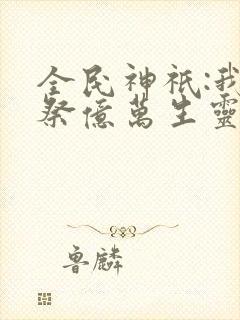 全民神祇:我
祭億萬生靈
魯麟